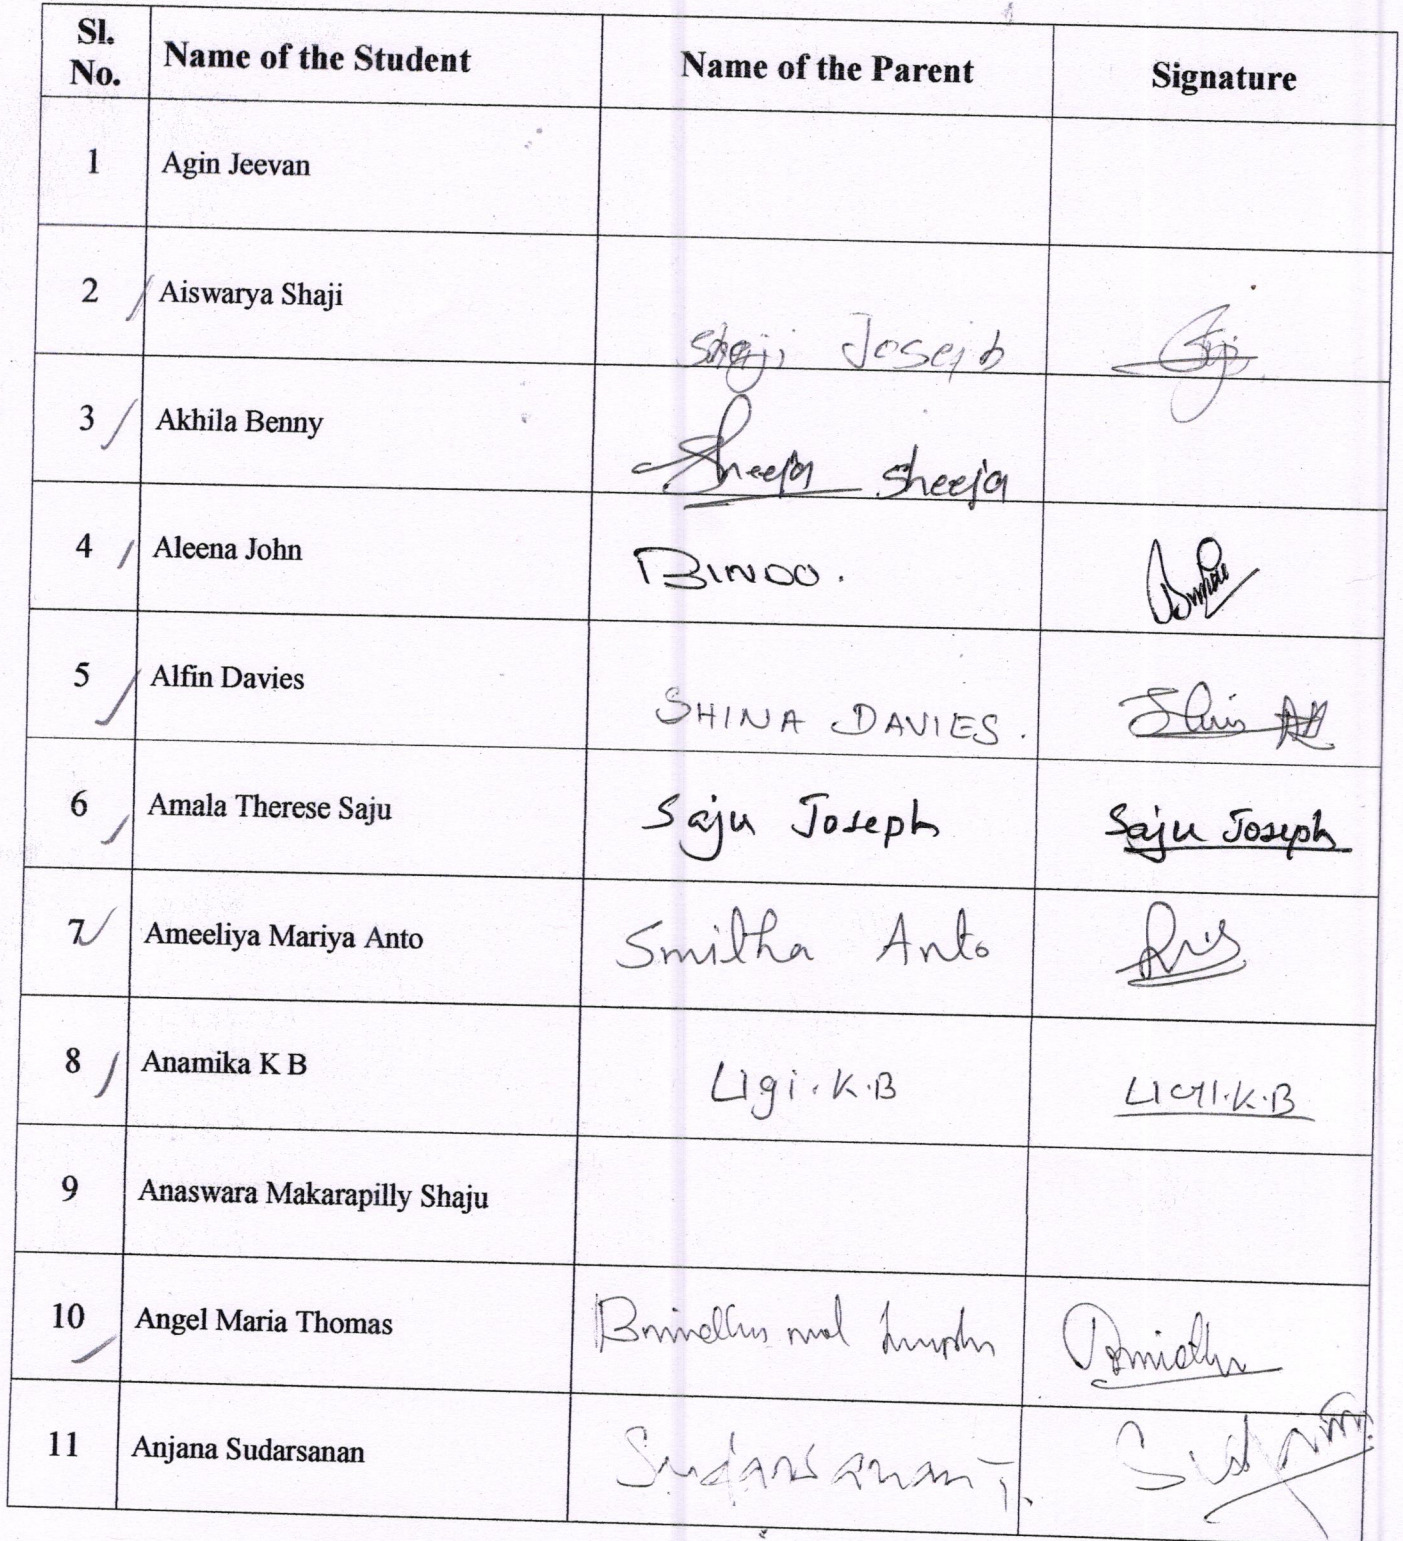 Sl. No. Name of the Student Name of the Parent Signature
1 Agin Jeevan
2 Aiswarya Shaji Shaji Joseph
3 Akhila Benny Sheeja Sheeja
4 Aleena John BINDO.
5 Alfin Davies SHINA DAVIES.
6 Amala Therese Saju Saju Joseph Saju Joseph
7 Ameeliya Mariya Anto Smitha Anto
8 Anamika K B Ligi.K.B LIGI.K.B
9 Anaswara Makarapilly Shaju
10 Angel Maria Thomas
11 Anjana Sudarsanan Sudarsanan T.